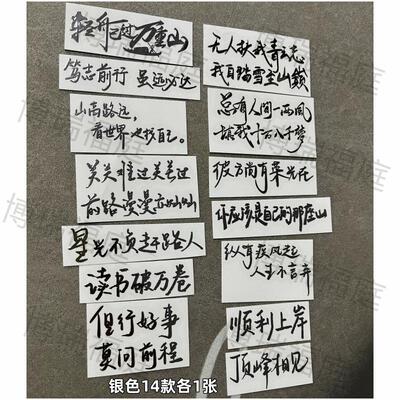 轻舟已过万重山
笃志前行 虽远必达
山高路远，
看世界也找自己。
关关难过关关过
前路漫漫亦灿灿
星光不负赶路人
读书破万卷
但行好事
莫问前程
无人扶我青云志
我自踏雪至山巅
总有人间一两风
填我十万八千梦
彼方尚有荣光在
你应该是自己的那座山
纵有疾风起
人生不言弃
顺利上岸
顶峰相见
银色14款各1张